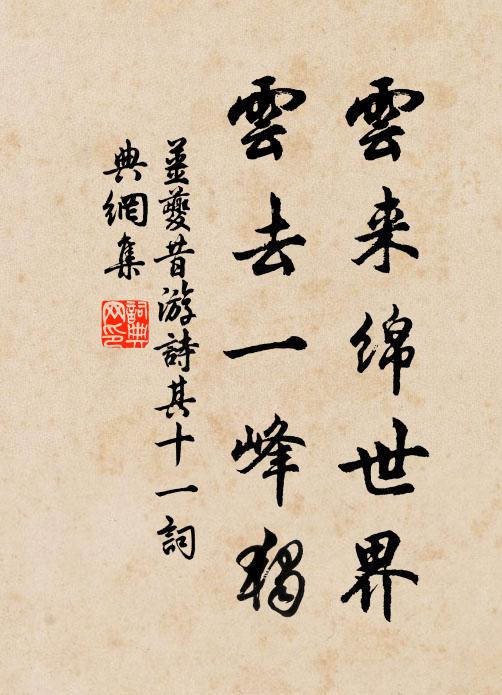 雲来绵世界
雲去一峰独
姜夔昔游詩其十一詞
典網集
詞典
网印